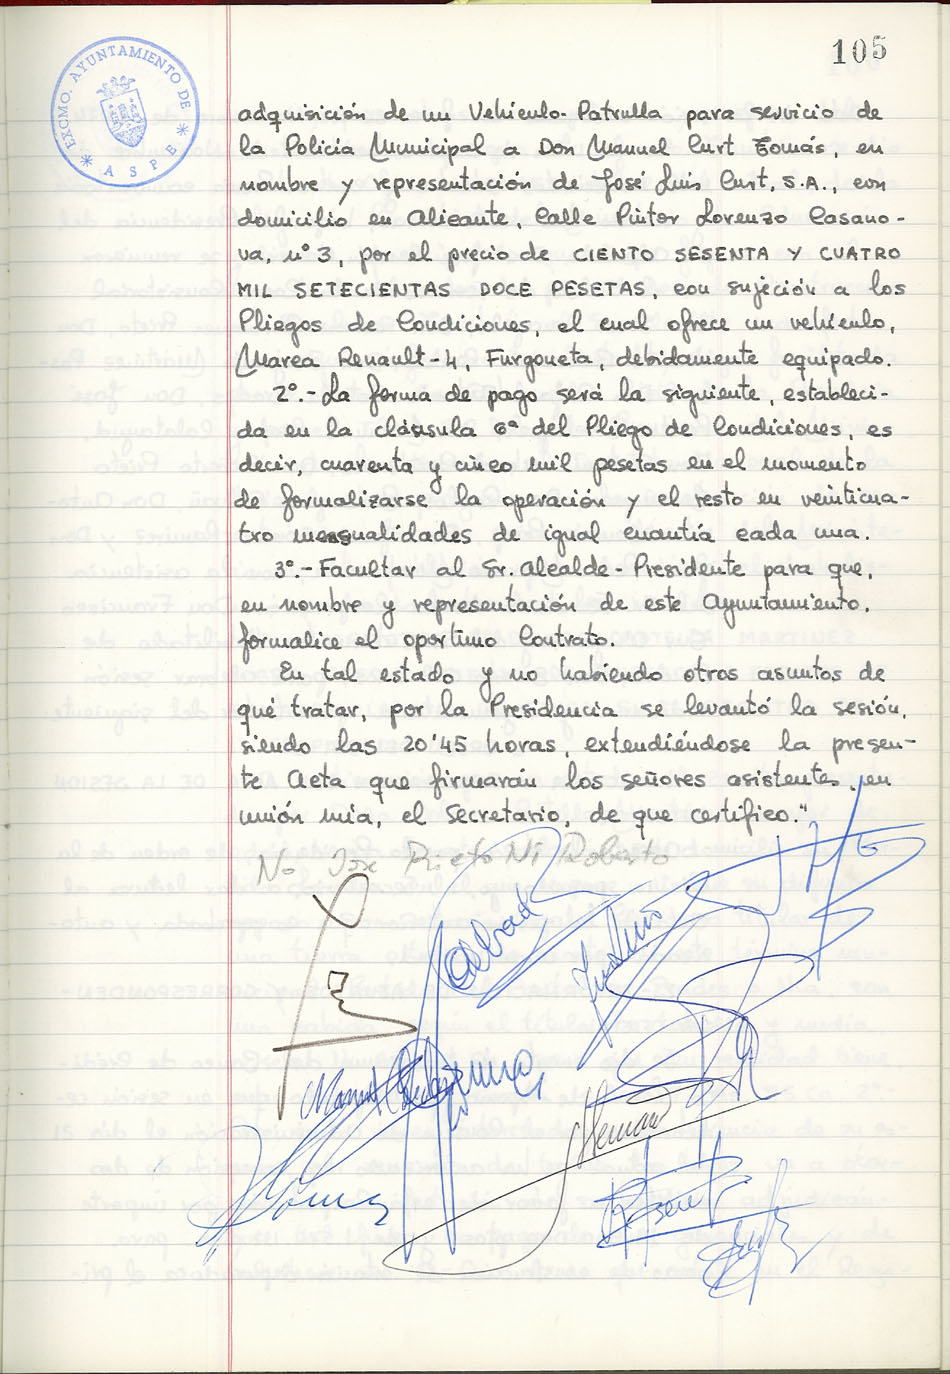 105
EXCMO. AYUNTAMIENTO DE
* ASPE *
adquisición de un Vehículo-Patrulla para servicio de
la Policía Municipal a Don Manuel Curt Tomás, en
nombre y representación de José Luis Curt, S.A., con
domicilio en Alicante, Calle Pintor Lorenzo Casano-
va, nº 3, por el precio de CIENTO SESENTA Y CUATRO
MIL SETECIENTAS DOCE PESETAS, con sujeción a los
Pliegos de Condiciones, el cual ofrece un vehículo,
Marca Renault-4, Furgoneta, debidamente equipado.
2º.- La forma de pago será la siguiente, estableci-
da en la cláusula 6ª del Pliego de Condiciones, es
decir, cuarenta y cinco mil pesetas en el momento
de formalizarse la operación y el resto en veinticua-
tro mensualidades de igual cuantía cada una.
3º.- Facultar al Sr. Alcalde-Presidente para que,
en nombre y representación de este Ayuntamiento,
formalice el oportuno Contrato.
En tal estado y no habiendo otros asuntos de
qué tratar, por la Presidencia se levantó la sesión,
siendo las 20'45 horas, extendiéndose la presen-
te Acta que firmarán los señores asistentes, en
unión mía, el Secretario, de que certifico."
No José Prieto Ni Roberto
Abad
Manuel